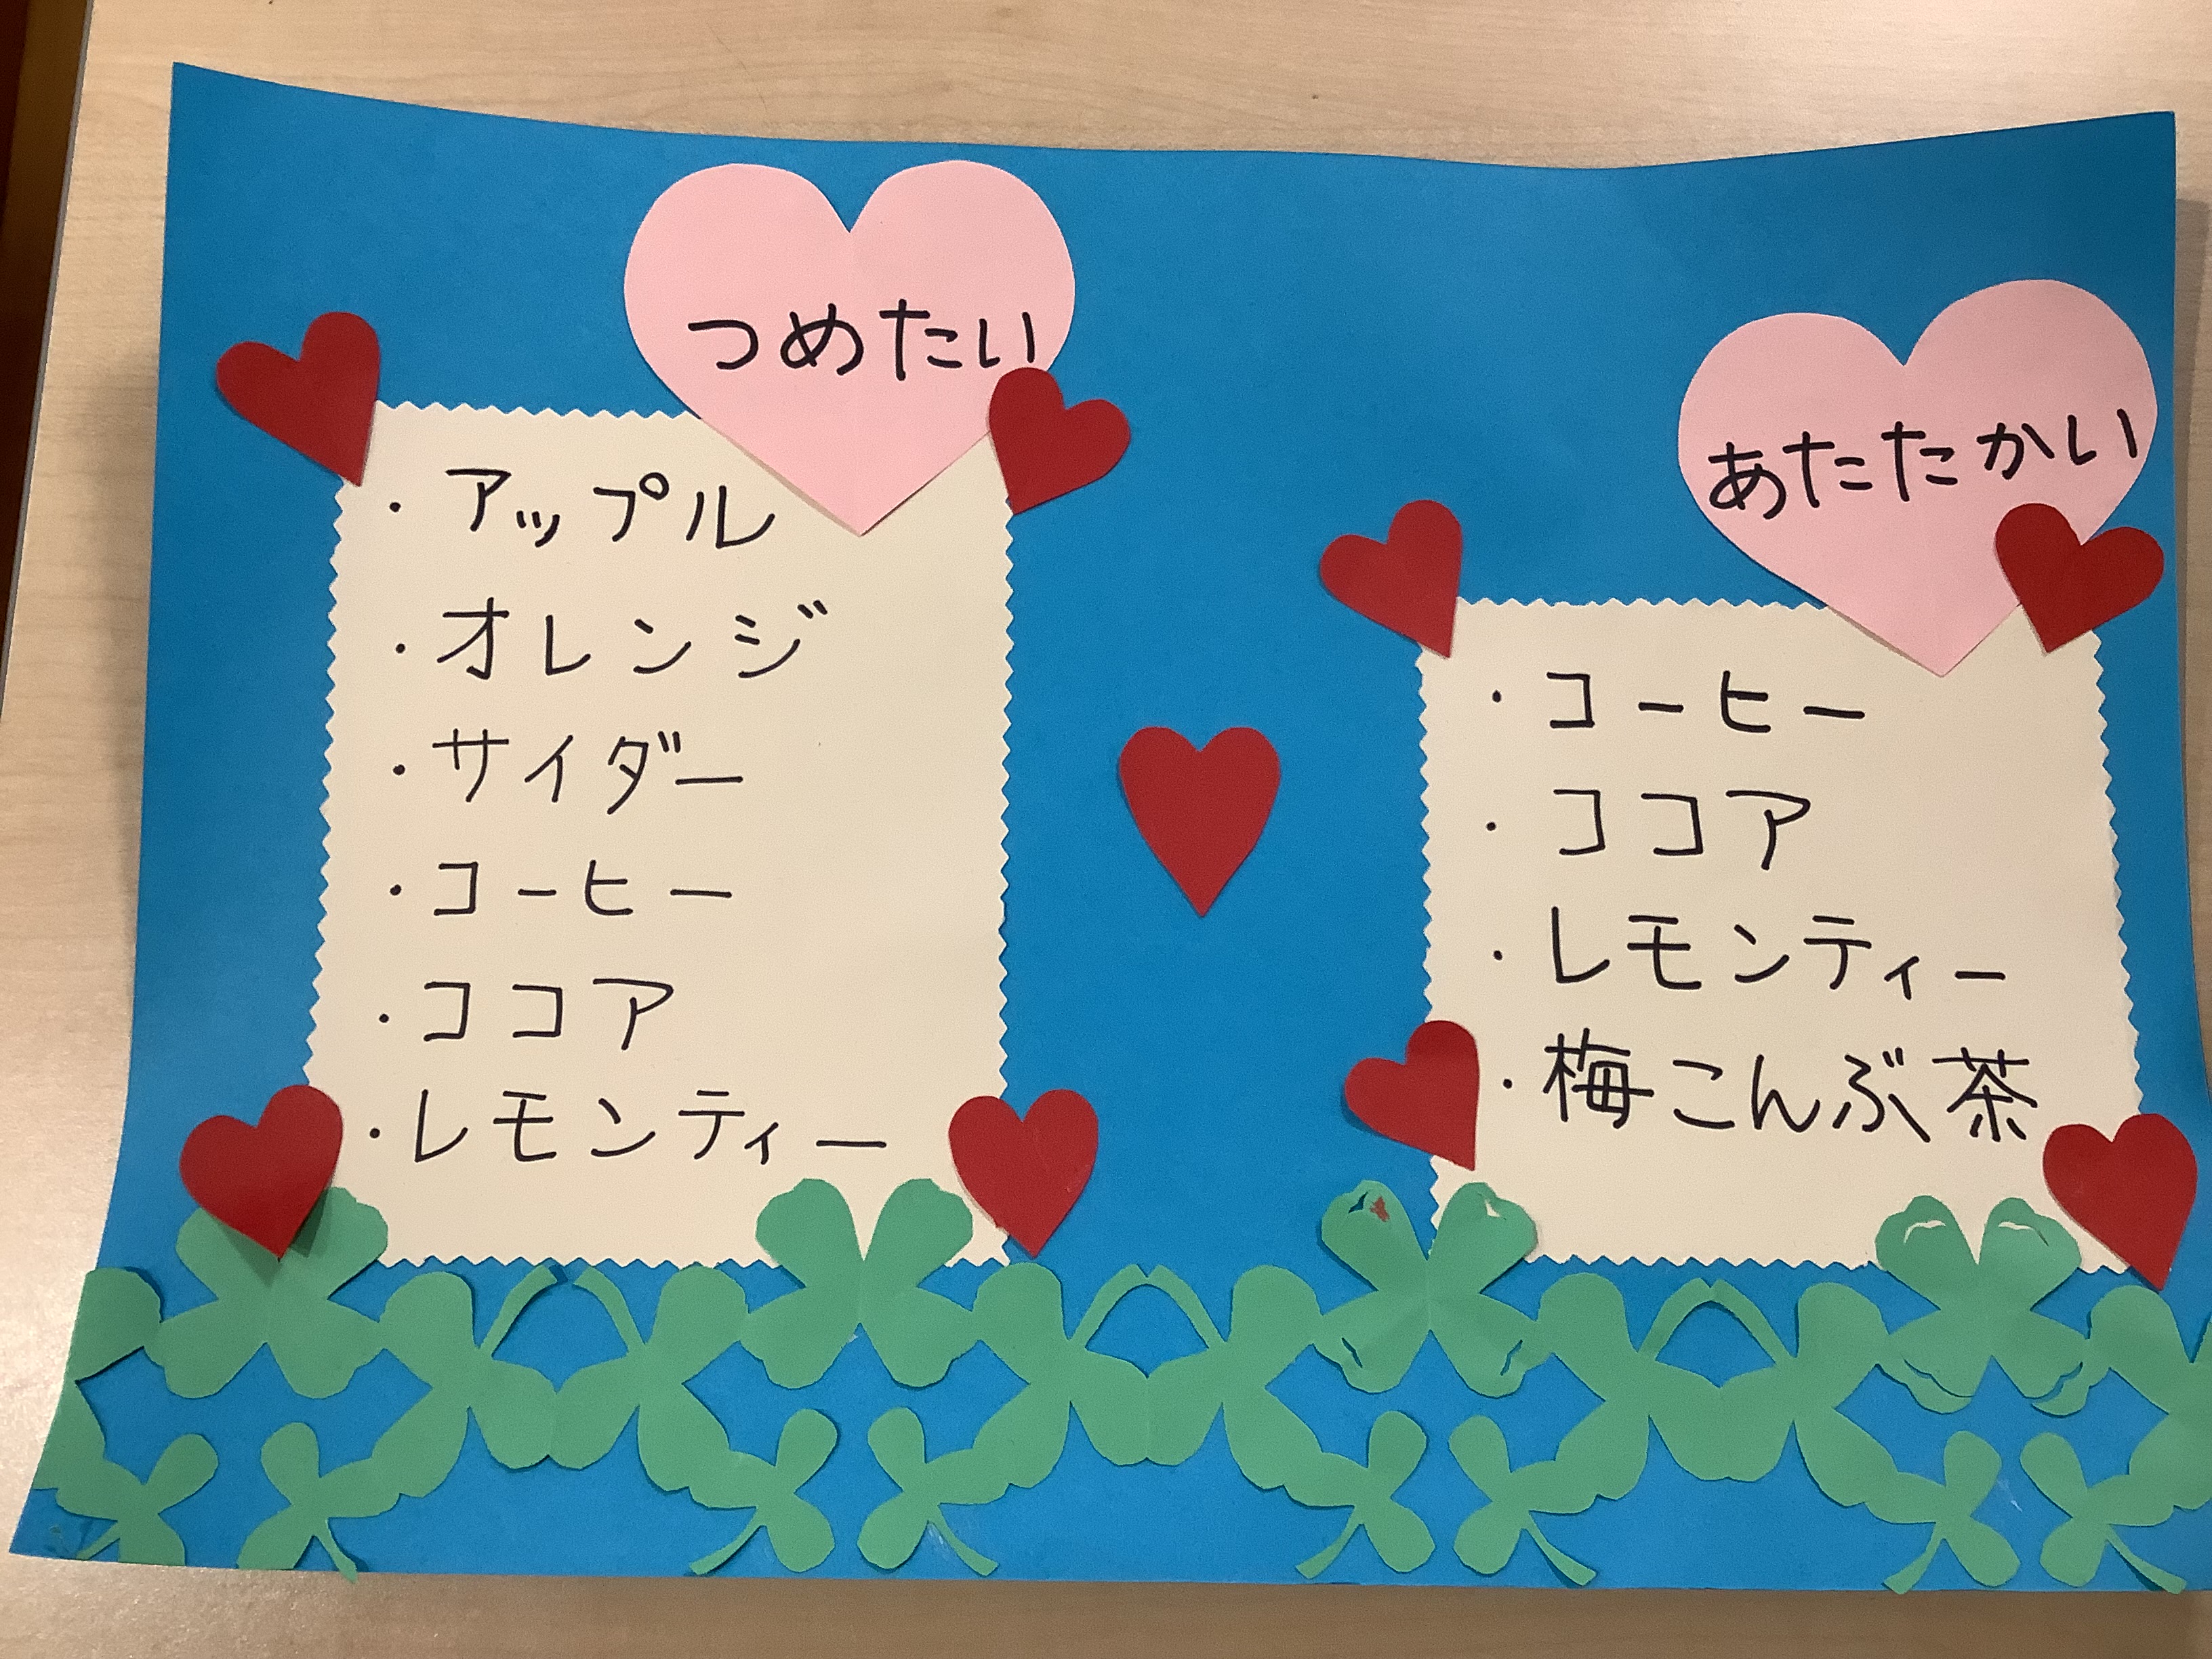 つめたい
・アップル
・オレンジ
・サイダー
・コーヒー
・ココア
・レモンティー
あたたかい
・コーヒー
・ココア
・レモンティー
・梅こんぶ茶